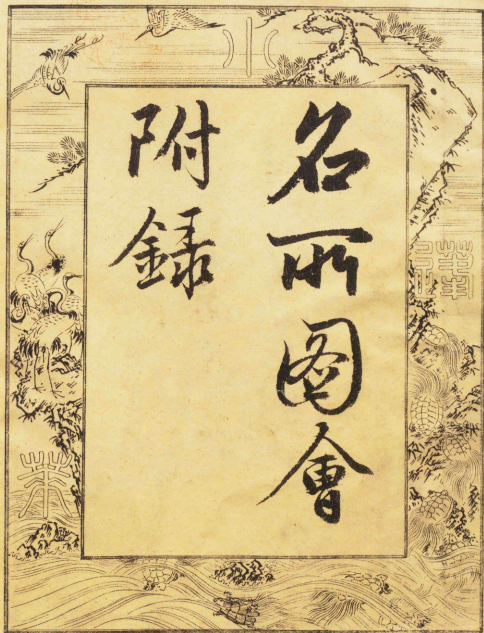 名所图會
附録